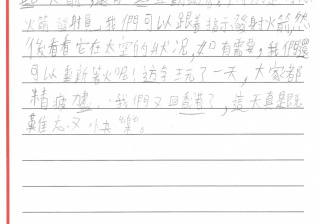 火箭發射員,我們可以跟着指示發射火箭,然
後看看它在太空的狀況,如有需要,我們還
可以重新點火呢!這天玩了一天,大家都
精疲力盡。我們又回香港了,這天真是既
難忘又快樂。